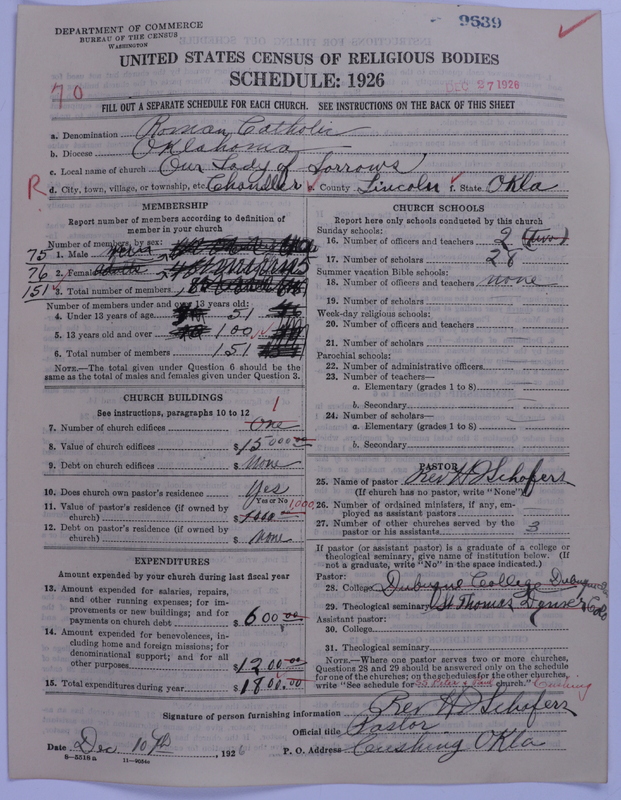 DEPARTMENT OF COMMERCE
BUREAU OF THE CENSUS
WASHINGTON
9639
UNITED STATES CENSUS OF RELIGIOUS BODIES
SCHEDULE: 1926
DEC 27 1926
70
FILL OUT A SEPARATE SCHEDULE FOR EACH CHURCH. SEE INSTRUCTIONS ON THE BACK OF THIS SHEET
a. Denomination Roman Catholic
b. Diocese Oklahoma
c. Local name of church Our Lady of Sorrows
R d. City, town, village, or township, etc. Chandler e. County Lincoln f. State Okla
MEMBERSHIP
Report number of members according to definition of
member in your church
Number of members by sex:
75 1. Male
76 2. Female
151 3. Total number of members
Number of members under and over 13 years old:
4. Under 13 years of age 51
5. 13 years old and over 100
6. Total number of members 151
NOTE.—The total given under Question 6 should be
same as the total of males and females given under Question 3.
CHURCH BUILDINGS
See instructions, paragraphs 10 to 12
1
7. Number of church edifices One
8. Value of church edifices $15000
9. Debt on church edifices $ None
10. Does church own pastor's residence Yes
Yes or No
11. Value of pastor's residence (if owned by
church) $1000 1,000
12. Debt on pastor's residence (if owned by
church) $ None
EXPENDITURES
Amount expended by your church during last fiscal year
13. Amount expended for salaries, repairs,
and other running expenses; for im-
provements or new buildings; and for
payments on church debt $600 00
14. Amount expended for benevolences, in-
cluding home and foreign missions; for
denominational support; and for all
other purposes $1200 00
15. Total expenditures during year $1800.00
CHURCH SCHOOLS
Report here only schools conducted by this church
Sunday schools:
16. Number of officers and teachers 2 (two)
17. Number of scholars 28
Summer vacation Bible schools:
18. Number of officers and teachers none
19. Number of scholars
Week-day religious schools:
20. Number of officers and teachers
21. Number of scholars
Parochial schools:
22. Number of administrative officers
23. Number of teachers—
a. Elementary (grades 1 to 8)
b. Secondary
24. Number of scholars—
a. Elementary (grades 1 to 8)
b. Secondary
PASTOR
25. Name of pastor Rev H J Schafers
(If church has no pastor, write "None")
26. Number of ordained ministers, if any, em-
ployed as assistant pastors
27. Number of other churches served by the
pastor or his assistants 3
If pastor (or assistant pastor) is a graduate of a college or
theological seminary, give name of institution below. (If
not a graduate, write "No" in the space indicated.)
Pastor:
28. College Dubuque College Dubuque
29. Theological seminary St Thomas Denver Colo
Assistant pastor:
30. College
31. Theological seminary
NOTE.—Where one pastor serves two or more churches,
Questions 28 and 29 should be answered only on the schedule
for one of the churches; on the schedules for the other churches,
write "See schedule for SS Peter & Paul church." Cushing
Signature of person furnishing information Rev H J Schafers
Official title Pastor
Date Dec 10th, 1926 P. O. Address Cushing Okla
8—5518a 11—9034a